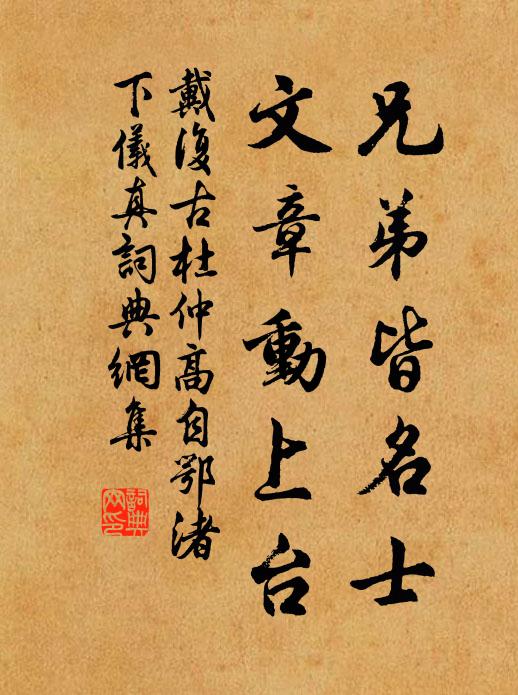 兄弟皆名士
文章動上台
戴復古杜仲高自鄂渚
下儀真詞典網集
詞典
网印